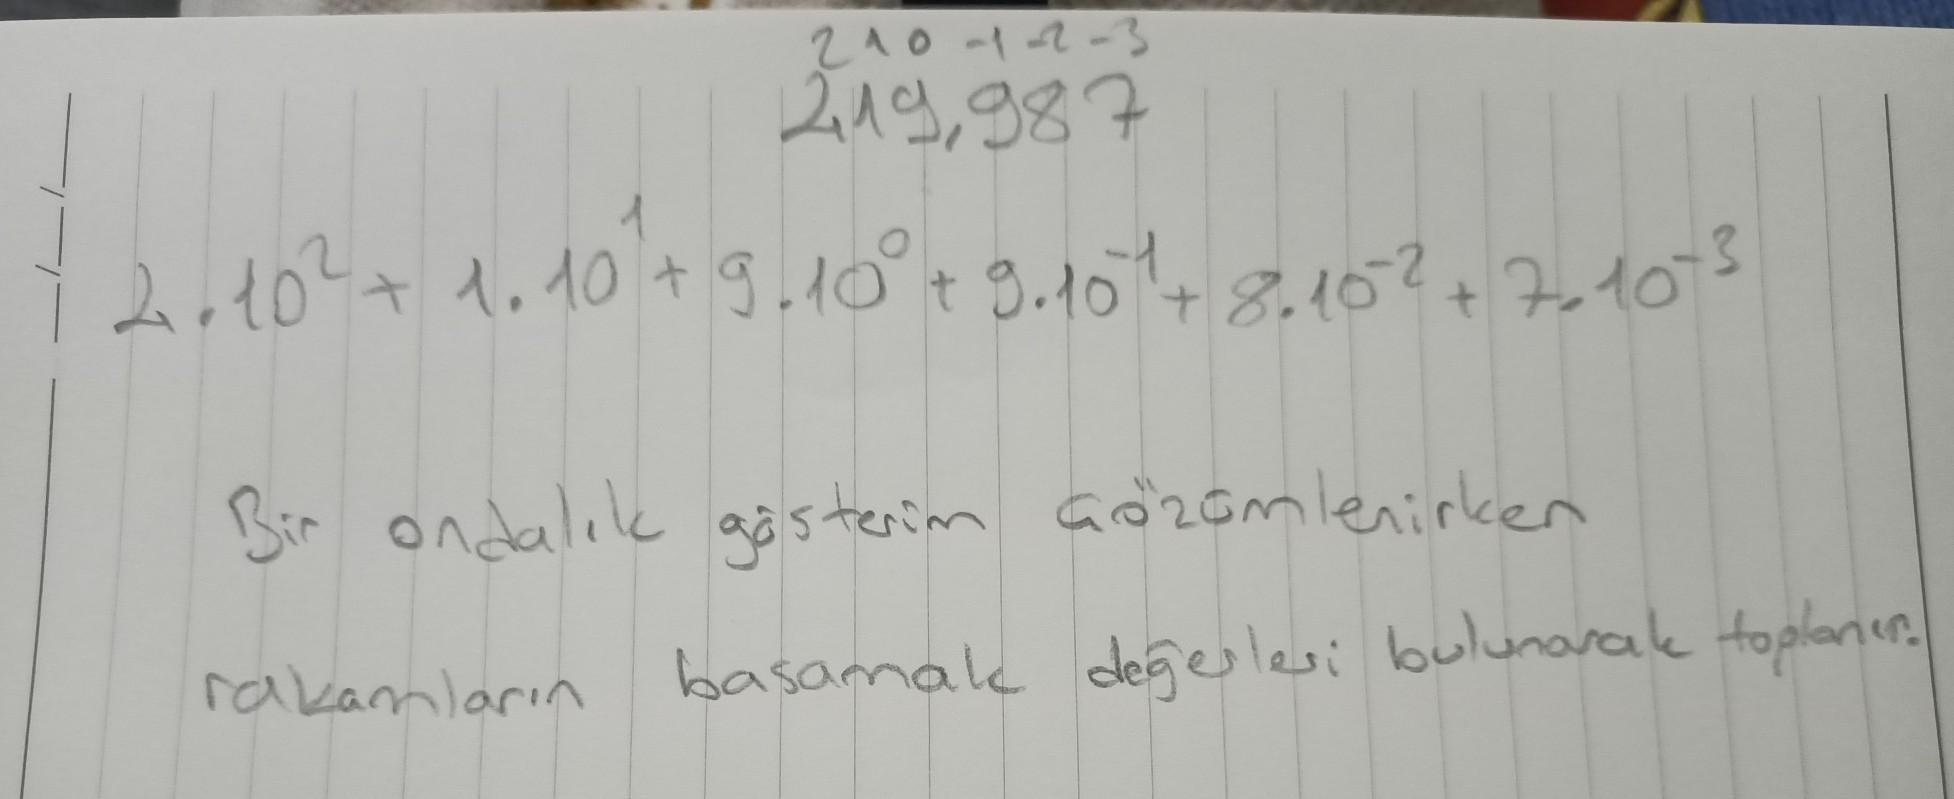 2 1 0 -1 -2 -3
219,987
2.10² + 1.10¹ + 9.10⁰ + 9.10⁻¹ + 8.10⁻² + 7.10⁻³
Bir ondalık gösterim çözümlenirken
rakamların basamak değerleri bulunarak toplanır.